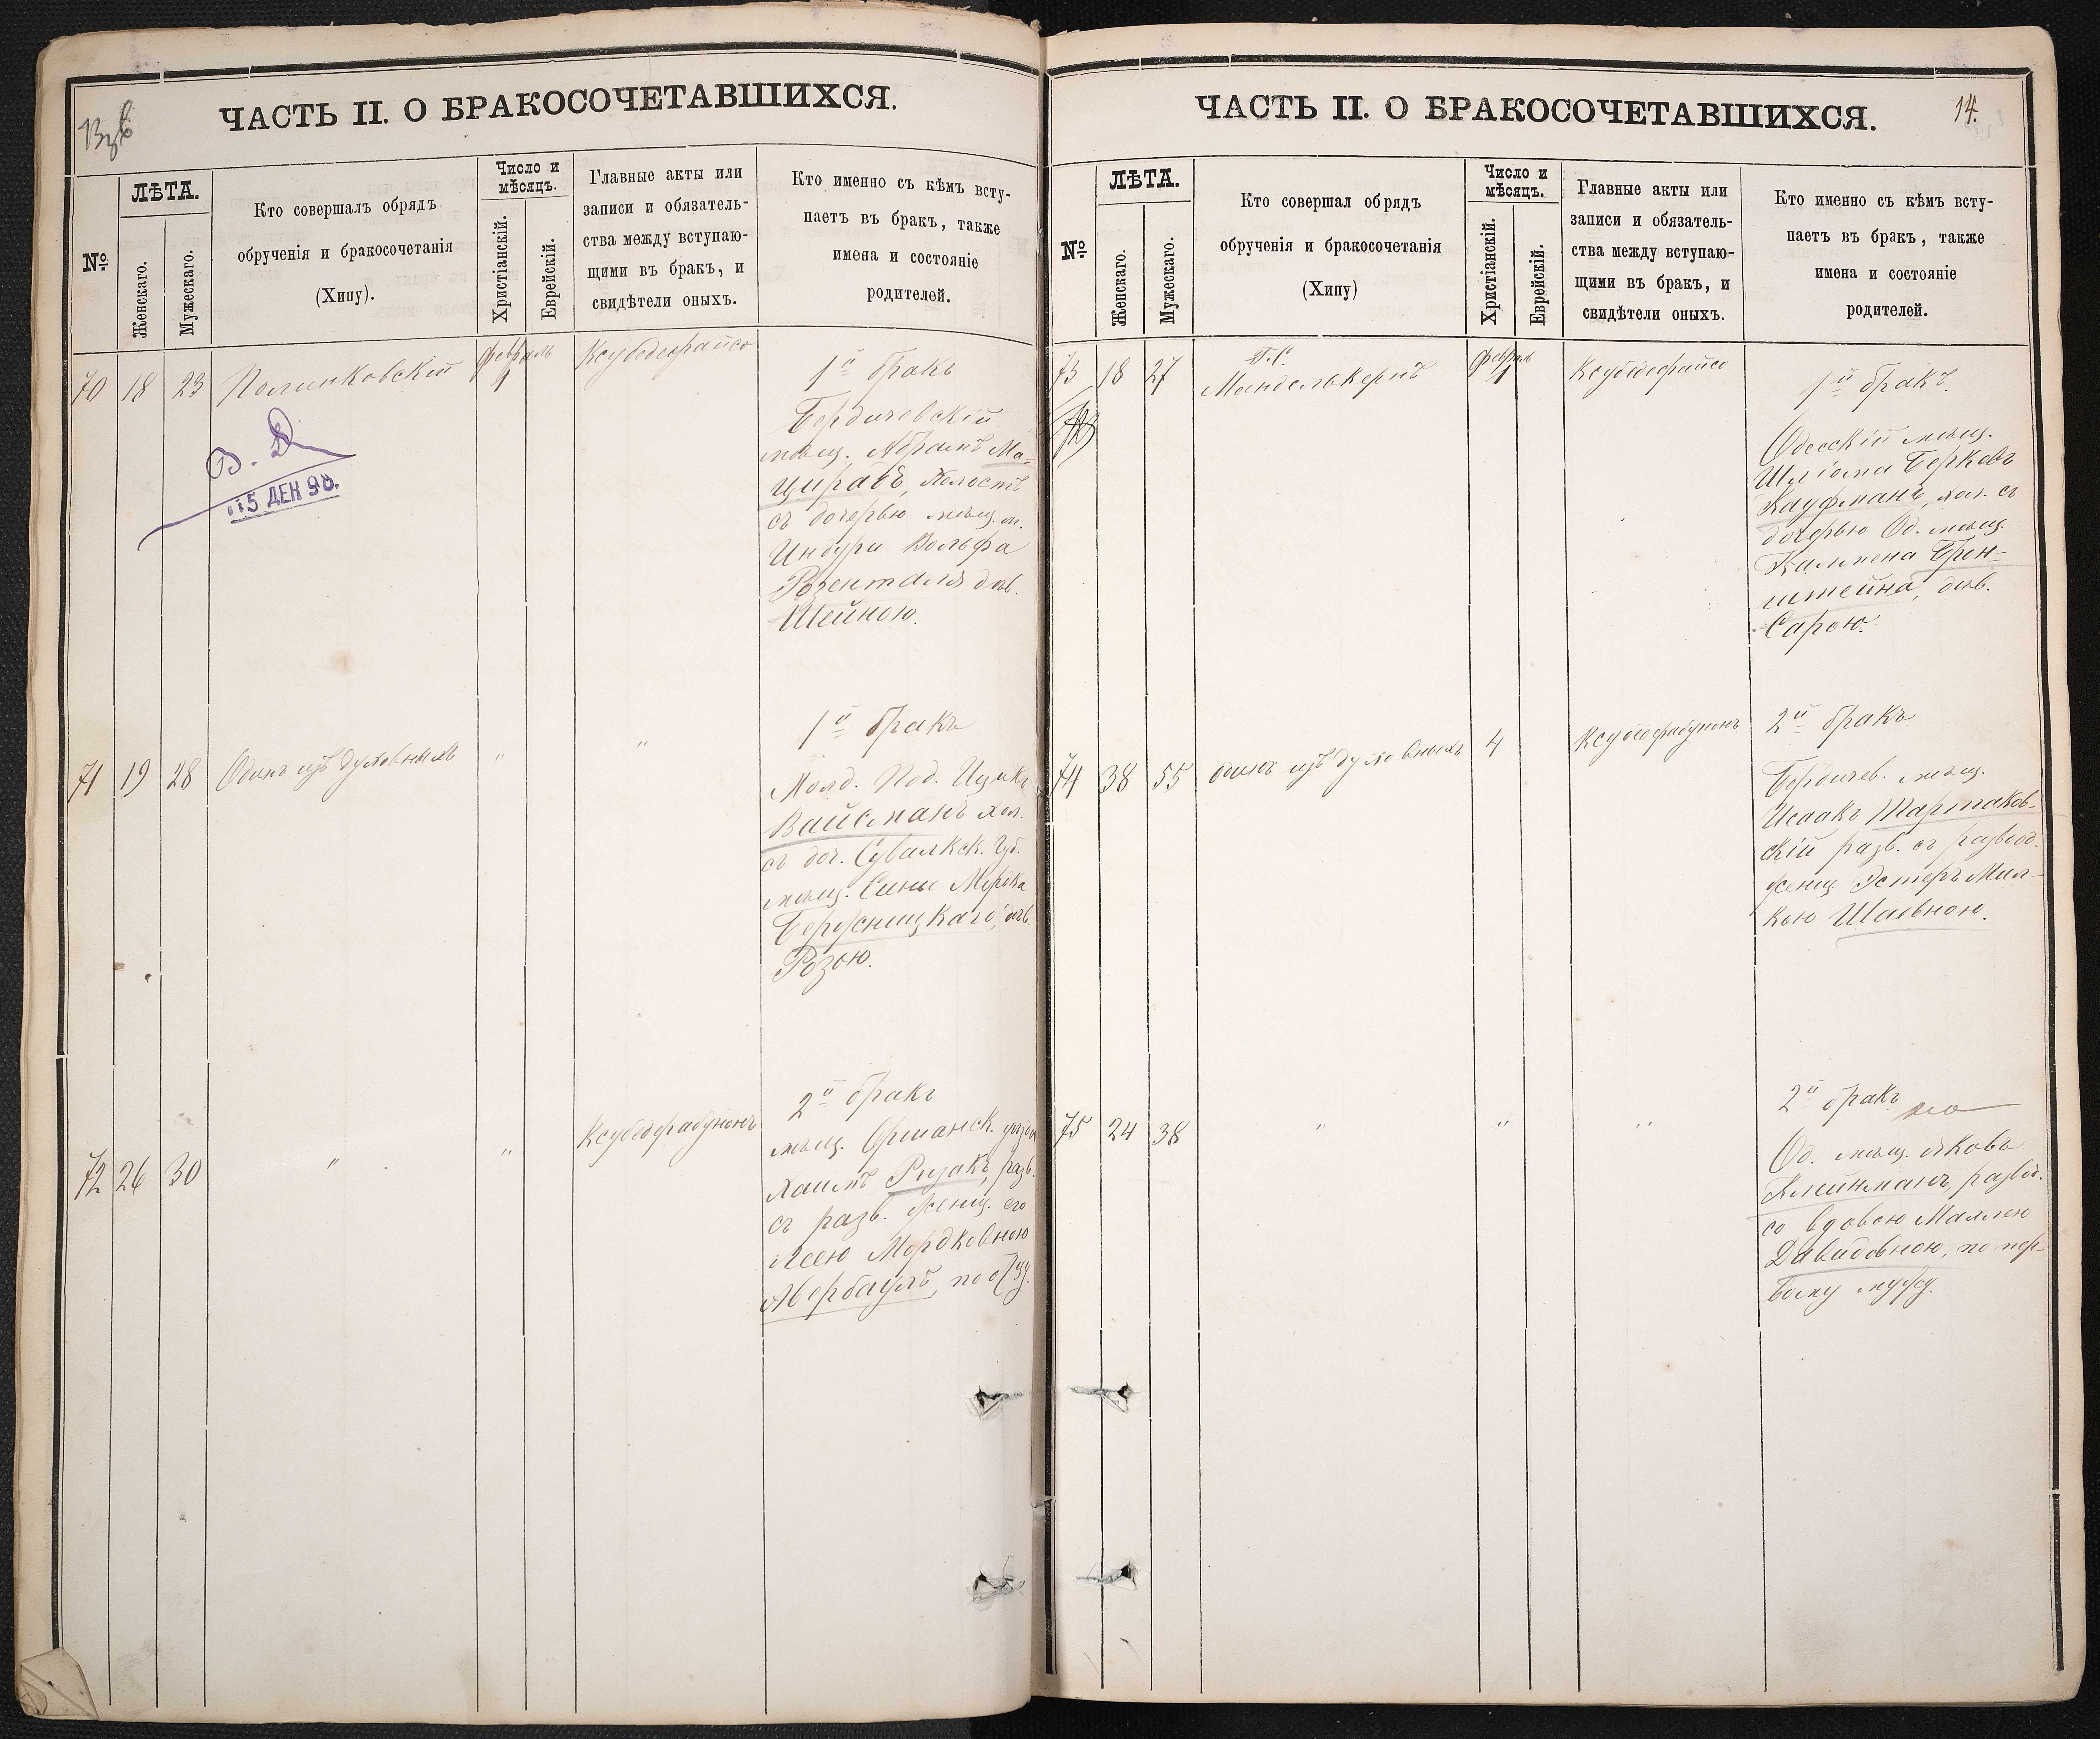 ЧАСТЬ II. О БРАКОСОЧЕТАВШИХСЯ.
№
ЛѢТА.
Женскаго.
Мужескаго.
Кто совершалъ обрядъ
обрученія и бракосочетанія
(Хипу).
Число и
мѣсяцъ.
Христіанскій.
Еврейскій.
Главные акты или
записи и обязатель-
ства между вступаю-
щими въ бракъ, и
свидѣтели оныхъ.
Кто именно съ кѣмъ всту-
паетъ въ бракъ, также
имена и состояніе
родителей.
70 18 23 Полинковскій
Февраль
1
Ксубедефайсо
1й бракъ
Бердичевскій
мѣщ. Абрамъ Ма-
цирабъ, холостъ
съ дочерью мѣщ. м.
Индури Вольфа
Розенталя дѣв.
Шейною.
В. Д
15 ДЕН 98.
71 19 28 Одинъ изъ духовныхъ " "
1й бракъ
Молд. Под. Ицикъ
Вайсманъ хол.
съ доч. Сувалкск. Губ.
мѣщ. Симы Мордка
Бержницкаго, дѣв.
Розою.
72 26 30 " " Ксубедефабунонъ
2й бракъ
мѣщ. Оршанск. уѣзда
Хаимъ Ризакъ, разв.
съ разв. женщ. его
Леею Мордковною
Авербаухъ, по отцу.
ЧАСТЬ II. О БРАКОСОЧЕТАВШИХСЯ.
14.
№
ЛѢТА.
Женскаго.
Мужескаго.
Кто совершал обрядъ
обрученія и бракосочетанія
(Хипу)
Число и
мѣсяцъ.
Христіанскій.
Еврейскій.
Главные акты или
записи и обязатель-
ства между вступаю-
щими въ бракъ, и
свидѣтели оныхъ.
Кто именно съ кѣмъ всту-
паетъ въ бракъ, также
имена и состояніе
родителей.
73 18 27
Г. С.
Манделькернъ
Февраль
1
Ксубедефайсо
1й бракъ.
Одесскій мѣщ.
Шліома Берковъ
Кауфманъ, хол. съ
дочерью Од. мѣщ.
Калмена Брон-
штейна, дѣв.
Сарою.
74 38 55 одинъ изъ духовныхъ 4 Ксубедефабунонъ
2й бракъ
Бердичев. мѣщ.
Исаакъ Тартаков-
скій разв. съ развод.
женщ. Эстеръ Мил-
кою Шаевною.
75 24 38 " " "
2й бракъ
Од. мѣщ. Яковъ
Клейнманъ, развод.
со вдовою Маллею
Давидовною, по пер-
вому мужу.